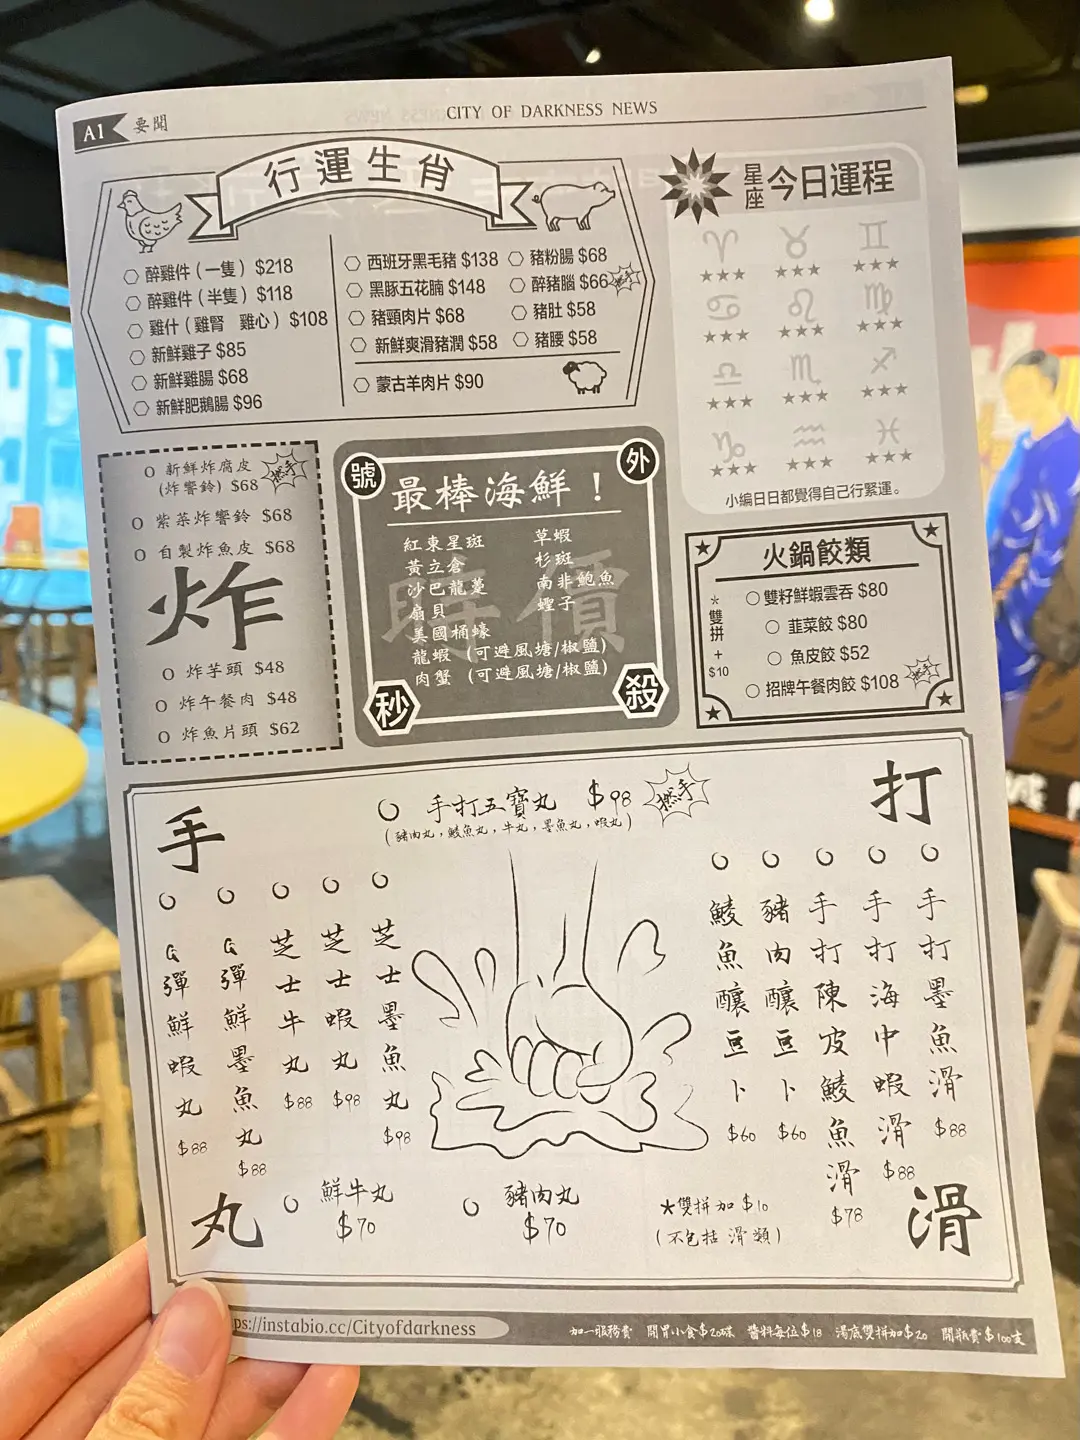 A1 要聞
CITY OF DARKNESS NEWS
行運生肖
醉雞件(一隻) $218
醉雞件(半隻) $118
雞什(雞腎 雞心) $108
新鮮雞子 $85
新鮮雞腸 $68
新鮮肥鵝腸 $96
西班牙黑毛豬 $138
黑豚五花腩 $148
豬頸肉片 $68
新鮮爽滑豬潤 $58
豬粉腸 $68
醉豬腦 $66
豬肚 $58
豬腰 $58
蒙古羊肉片 $90
星座今日運程
♈ ♉ ♊
★★★ ★★★ ★★★
♋ ♌ ♍
★★★ ★★★ ★★★
♎ ♏ ♐
★★★ ★★★ ★★★
♑ ♒ ♓
★★★ ★★★ ★★★
小編日日都覺得自己行緊運。
新鮮炸腐皮
(炸響鈴) $68
紫菜炸響鈴 $68
自製炸魚皮 $68
炸
炸芋頭 $48
炸午餐肉 $48
炸魚片頭 $62
號外
最棒海鮮！
時價
紅東星斑
黃立倉
沙巴龍躉
扇貝
美國桶蠔
龍蝦 (可避風塘/椒鹽)
肉蟹 (可避風塘/椒鹽)
草蝦
杉斑
南非鮑魚
蟶子
秒殺
火鍋餃類
*雙拼+$10
雙籽鮮蝦雲吞 $80
韮菜餃 $80
魚皮餃 $52
招牌午餐肉餃 $108
手打丸滑
手打五寶丸 $98
(豬肉丸,鯪魚丸,牛丸,墨魚丸,蝦丸)
Q彈鮮蝦丸 $88
Q彈鮮墨魚丸 $88
芝士牛丸 $88
芝士蝦丸 $98
芝士墨魚丸 $98
鯪魚釀豆卜 $60
豬肉釀豆卜 $60
手打陳皮鯪魚滑 $78
手打海中蝦滑 $88
手打墨魚滑 $88
鮮牛丸
$70
豬肉丸
$70
★雙拼加 $10
(不包括 滑類)
ps://instabio.cc/Cityofdarkness
加一服務費 開胃小食$20碟 醬料每位$18 湯底雙拼加$20 開瓶費$100支